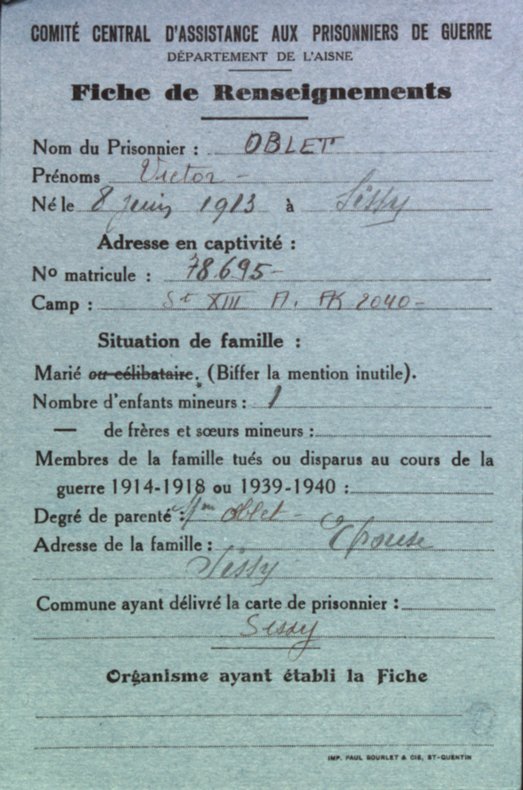 COMITÉ CENTRAL D'ASSISTANCE AUX PRISONNIERS DE GUERRE
DÉPARTEMENT DE L'AISNE
Fiche de Renseignements
Nom du Prisonnier : OBLET
Prénoms Victor -
Né le 8 juin 1913 à Sissy
Adresse en captivité :
No matricule : 78.695 -
Camp : St XIII A. AK 2040 -
Situation de famille :
Marié ou célibataire. (Biffer la mention inutile).
Nombre d'enfants mineurs : 1
— de frères et sœurs mineurs :
Membres de la famille tués ou disparus au cours de la
guerre 1914-1918 ou 1939-1940 :
Degré de parenté : Mme Oblet -
Adresse de la famille : Epouse
Sissy
Commune ayant délivré la carte de prisonnier :
Sissy
Organisme ayant établi la Fiche
IMP. PAUL BOURLET & CIE, ST-QUENTIN